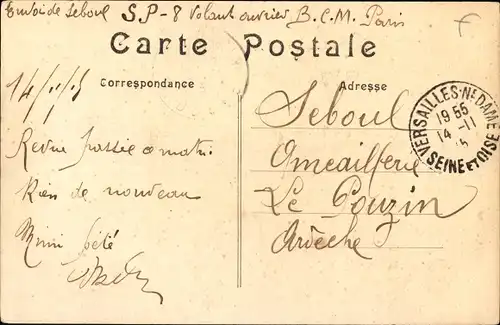 Envoi de Seboul S.P-8 Volant ouvrier B.C.M. Paris
Carte Postale
Correspondance
Adresse
14/11/15
Revue passée ce matin
Rien de nouveau
Mimi fêté
Seboul
Quincaillerie
Le Pouzin
Ardèche
VERSAILLES-Nᵗ DAME
19 55
14 - 11
15
SEINE ET OISE